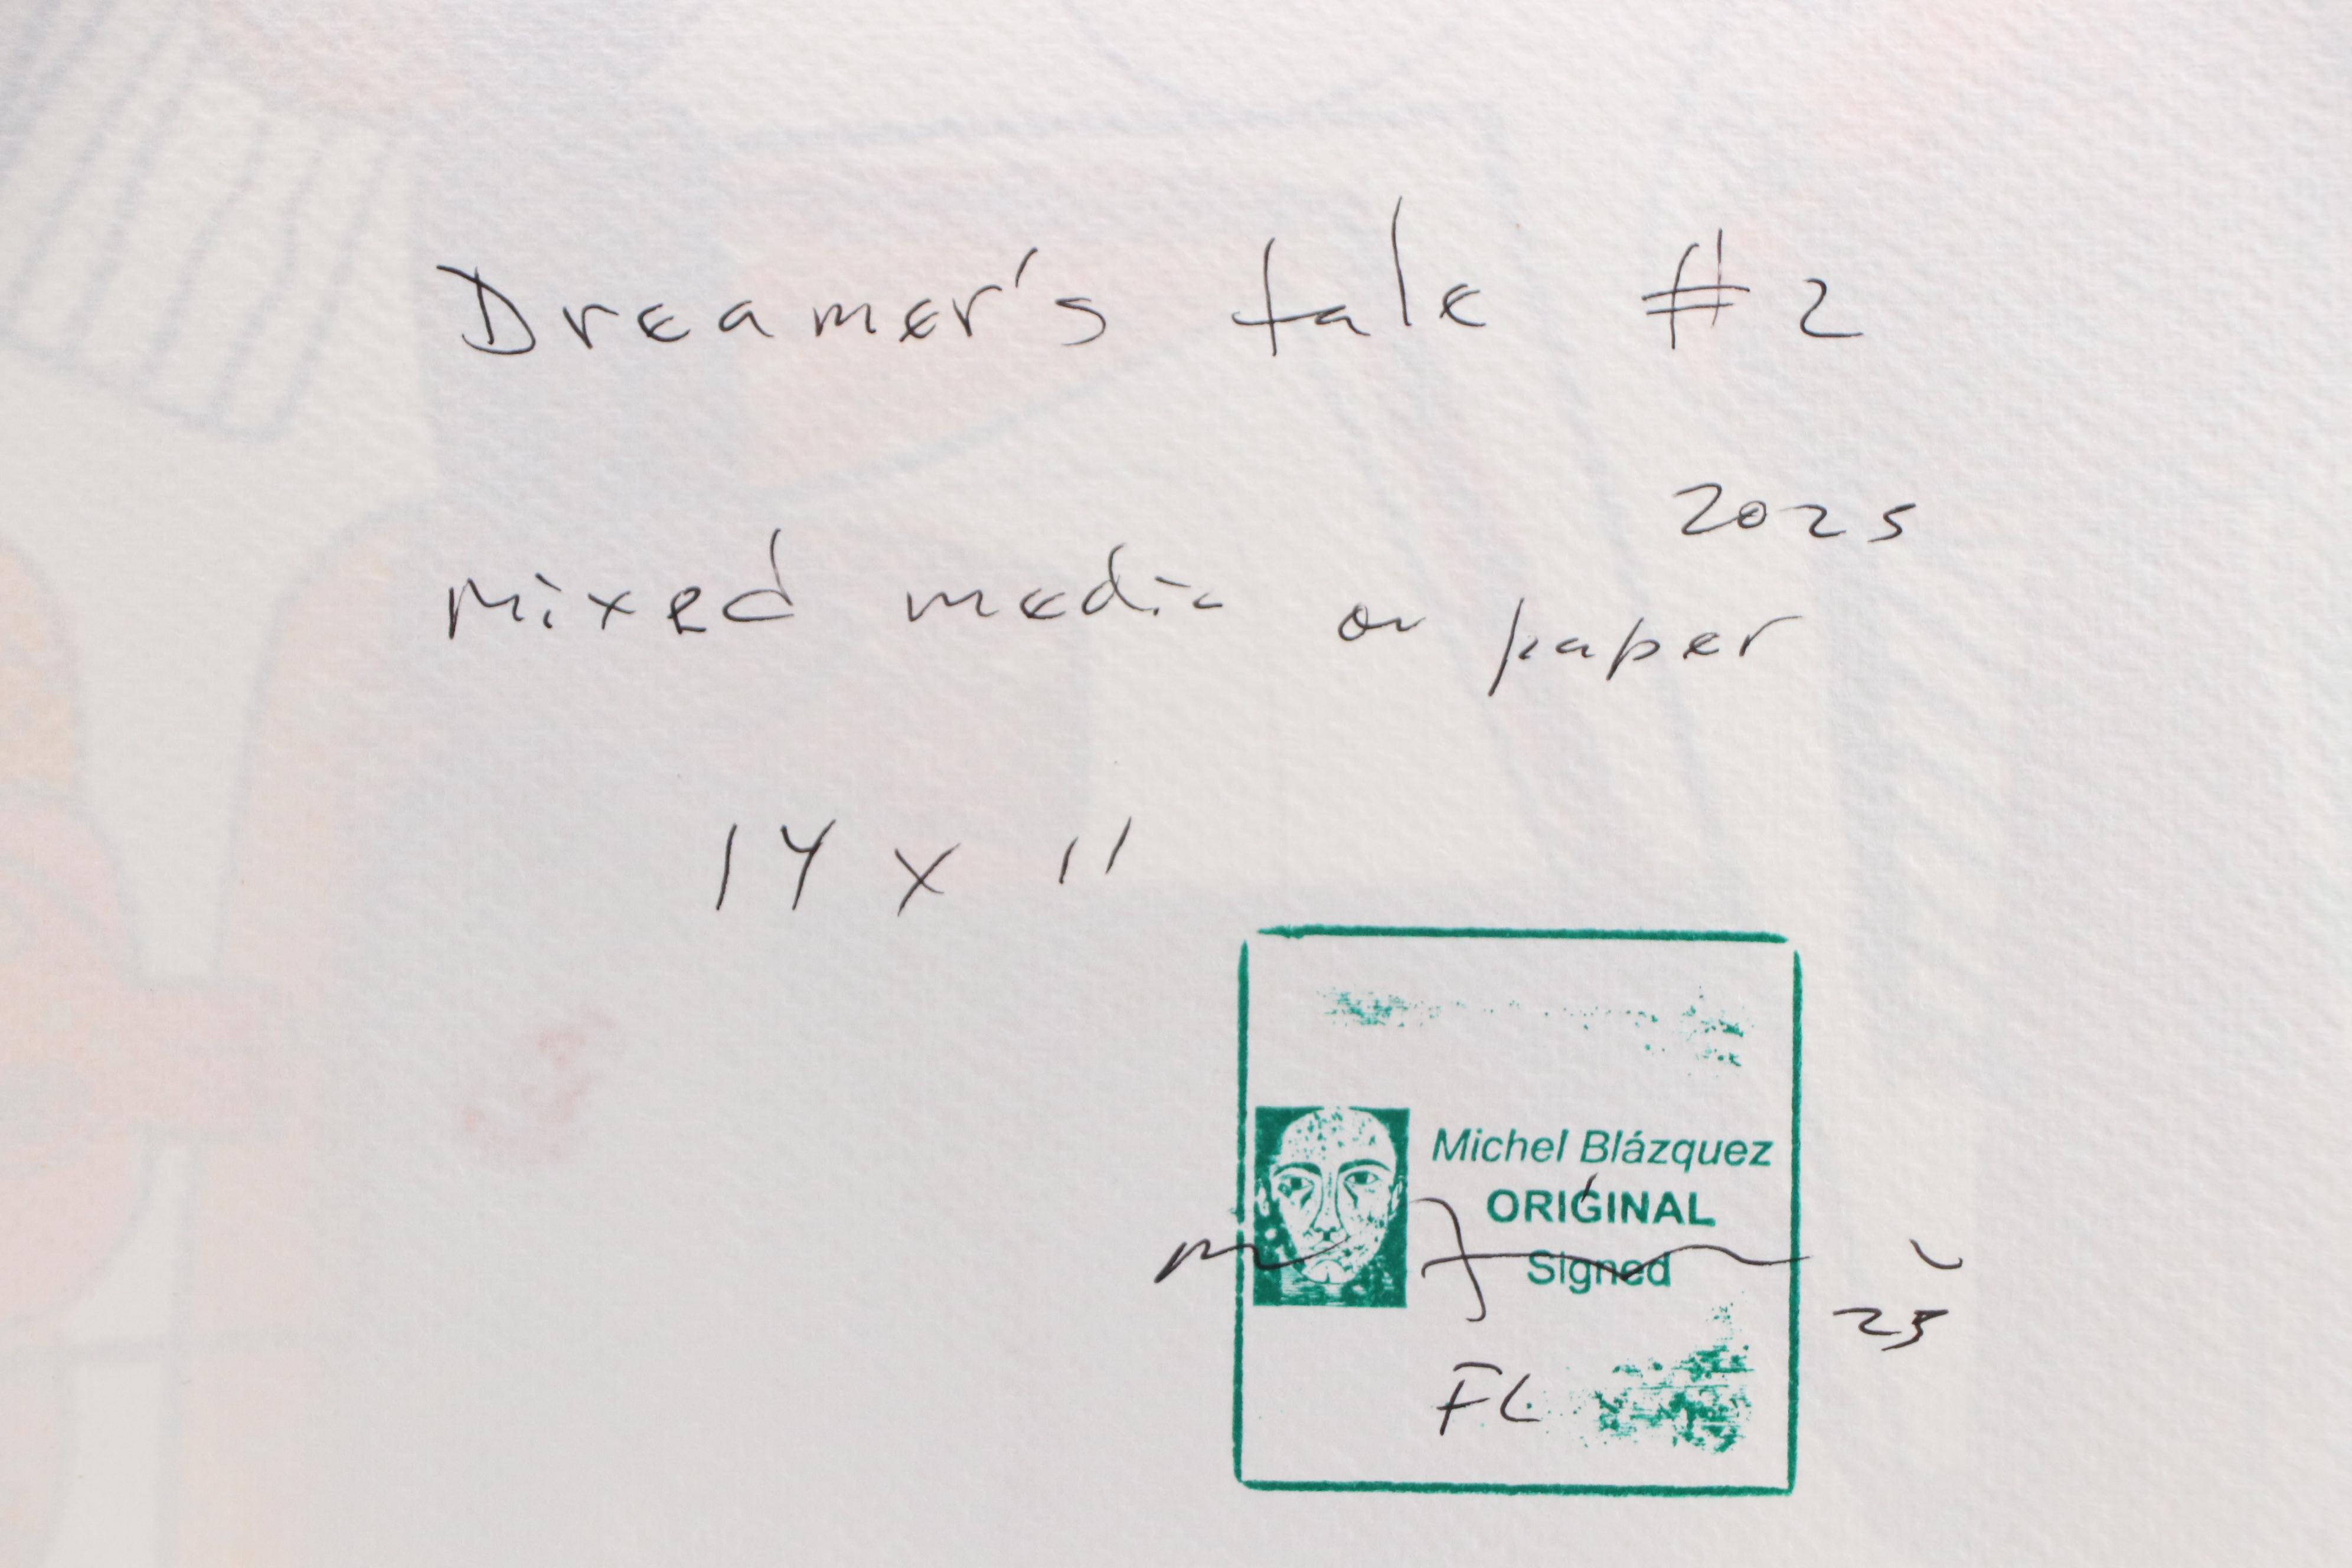 Dreamer's tale #2
2025
mixed media on paper
14 x 11
Michel Blázquez
ORIGINAL
Signed
25
FL